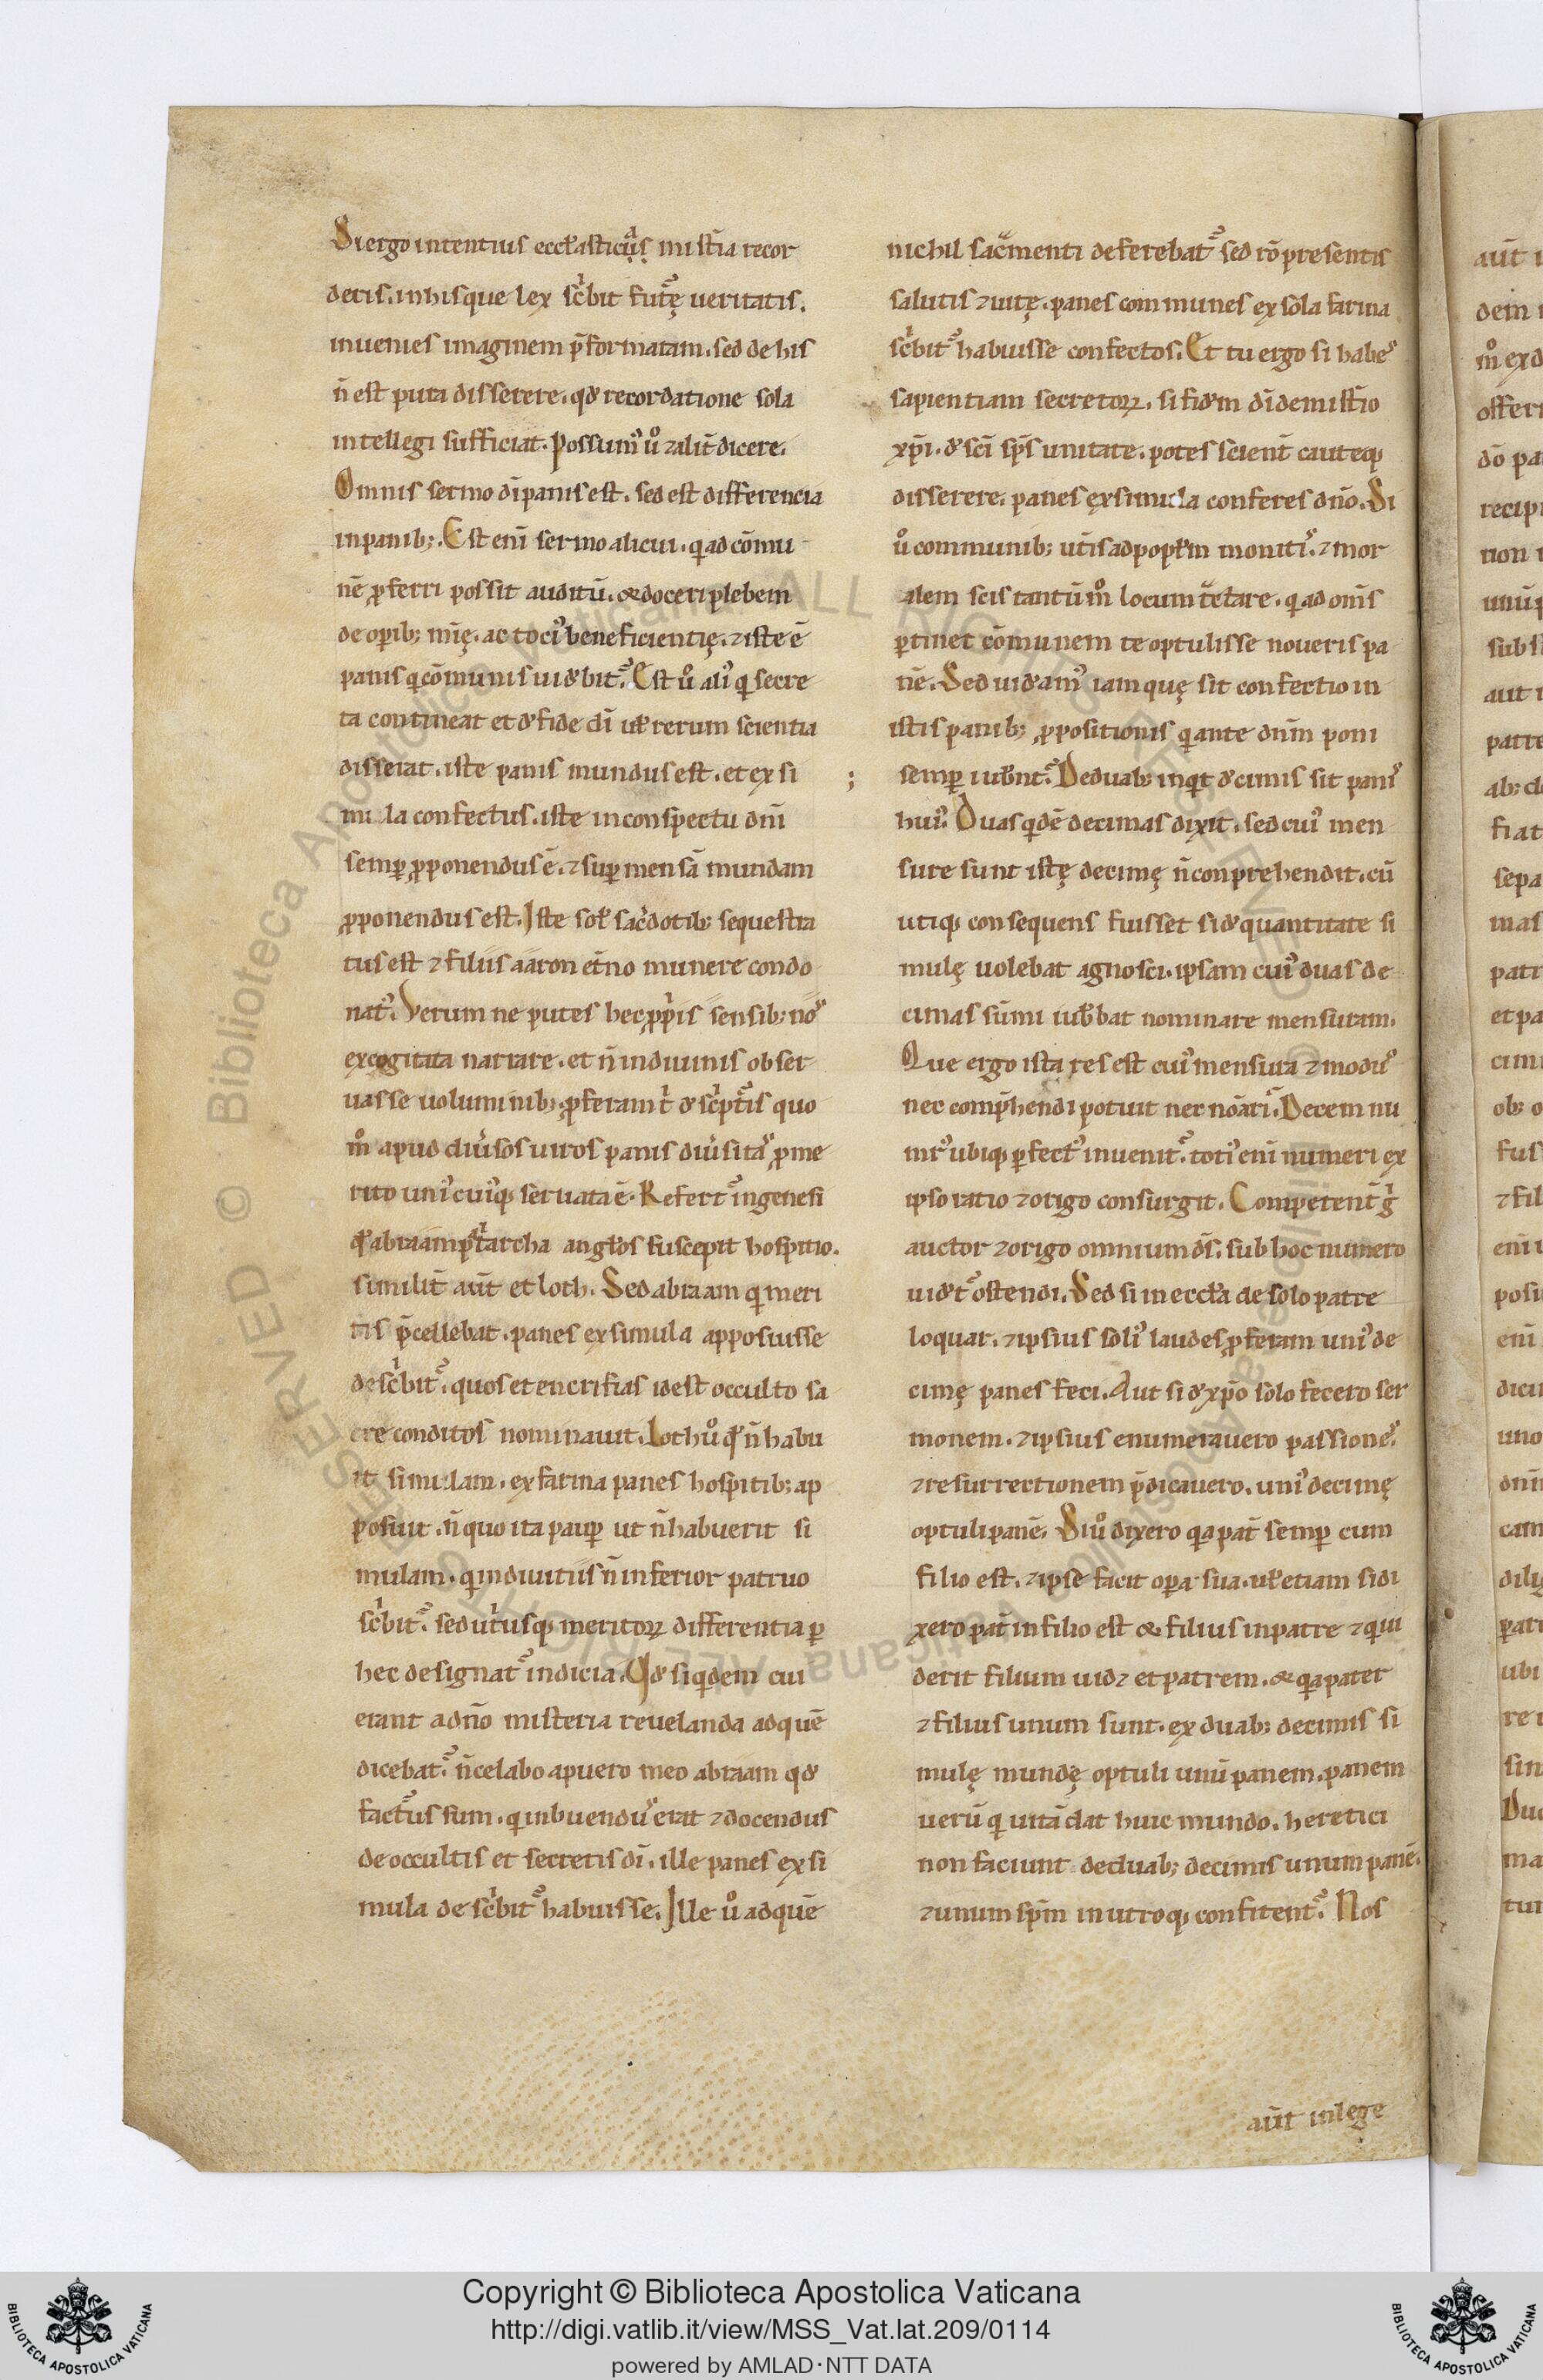 Si ergo intentius eccl̄asticus̨ mist̄ia recor
deris. in hisque lex sc̄bit fut᷑ę ueritatis.
inuenies imaginem p̄formatam. sed de his
n̄ est pura disserere. qđ recordatione sola
intellegi sufficiat. Possumꝰ uͦ ⁊alit̄ dicere.
Omnis sermo dī panis est. sed est differencia
in panib; Est enī sermo alicui. q ad cōmu
nē ꝓferri possit auditū. & doceri plebem
de oꝑib; mīę. ac tociꝰ beneficientię. ⁊iste ē
panis q cōmunis uiđbit᷑. Est uͦ aliꝰ q secre
ta contineat et đ fide dī uł rerum scientia
disserat. iste panis mundus est. et ex si
mila confectus. iste in conspectu dnī
semꝑ ꝓponendus ē. ⁊ suꝑ mensā mundam
ꝓponendus est. Iste soł sac̄dotib; sequestra
tus est ⁊ filiis aaron et̄no munere condo
natꝰ. Verum ne putes hec ꝓpīs sensib; nōs
excogitata narrare. et n̄ in diuinis obser
uasse uoluminib; ꝓferamꝰ đ sc̄pt᷑is quo
mͦ apud diūsos uiros panis diūsitas ꝓ me
rito uniꝰcuiꝰq; seruata ē. Refert᷑ in genesi
qđ abraam pat̄archa angłos suscepit hospitio.
similit̄ aūt et loth. Sed abraam q meri
tis p̄cellebat. panes ex simula apposuisse
desc̄bit᷑. quos et encrifias idest occulto sa
cre conditos nominauit. Loth uͦ q n̄ habu
it simulam. ex farina panes hospitib; ap
posuit. n̄ quo ita pauꝑ ut n̄ habuerit si
mulam. q in diuitiis n̄ inferior patruo
sc̄bit᷑. sed ut̄usq; meritoꝝ differentia ꝑ
hec designat᷑ indicia. Qđ siqdem cui
erant a dn̄o misteria reuelanda ad quē
dicebat᷑. n̄ celabo a puero meo abraam qđ
fact᷑us sum. q inbuendus erat ⁊docendus
de occultis et secretis dī. ille panes ex si
mula desc̄bit᷑ habuisse. Ille uͦ ad quē
nichil sac̄menti deferebat᷑ sed rō presentis
salutis ⁊uitę. panes communes ex sola farina
sc̄bit᷑ habuisse confectos. Et tu ergo si habes
sapientiam secretoꝝ. si fiđm dī de mist̄io
xp̄i. đ scī sp̄s unitate. potes scient̄ cauteq;
disserere. panes ex simila conferes dn̄o. Si
uͦ communib; ut̄is ad popłm monitis. ⁊mor
alem scis tantū mͦ locum t̄ctare. q ad om̄s
ꝑtinet cōmunem te optulisse noueris pa
nē. Sed uiđamꝰ iam quę sit confectio in
istis panib; ꝓpositionis q ante dnm̄ poni
; semꝑ iub̄nt᷑. De duab; inqt đcimis sit panis
huiꝰ. Duas qdē decimas dixit. sed cuiꝰ men
sure sunt istę decimę n̄ conprehendit. cū
utiq; consequens fuisset si đ quantitate si
mulę uolebat agnosci. ipsam cuiꝰ duas de
cimas sūmi iub̄bat nominare mensuram.
Que ergo ista res est cuiꝰ mensura ⁊modus
nec comp̄hendi potuit nec nōari. Decem nu
mrꝰ ubiq; ꝑfectꝰ inuenit᷑. totiꝰ enī numeri ex
ipso ratio ⁊origo consurgit. Competent̄ g̍
auctor ⁊origo omnium ds̄. sub hoc numero
uiđt᷑ ostendi. Sed si in eccła de solo patre
loquar. ⁊ipsius soliꝰ laudes ꝓferam uniꝰ de
cimę panes feci. Aut si đ xp̄o solo fecero ser
monem. ⁊ipsius enumerauero passiones.
⁊resurrectionem p̄dicauero. uniꝰ decimę
optuli panē. Si uͦ dixero qa pat̄ semꝑ cum
filio est. ⁊ipse facit oꝑa sua. uł etiam si di
xero pat̄ in filio est & filius in patre ⁊q ui
derit filium uidꝫ et patrem. & qa pater
⁊filius unum sunt. ex duab; decimis si
mulę mundę optuli unū panem. panem
uerū q uitā dat huic mundo. heretici
non faciunt de duab; decimis unum panē.
⁊unum sp̄m in utroq; confitent᷑. Nos
aūt in lege
aūt
dem
mͦ ex d
offer
dō pa
recip
non
unū p
sub si
aut
patre
ab; d
fiat
sepa
mas
patr
et pa
cim
ob; o
fus
⁊fil
enī
posu
enī
dicu
uno
dnī
cam
dilig
ꝑatr
ubi
re
sin
Duo
ma
tur
© Biblioteca Apostolica Vaticana ALL RIGHTS RESERVED
Copyright © Biblioteca Apostolica Vaticana
http://digi.vatlib.it/view/MSS_Vat.lat.209/0114
powered by AMLAD·NTT DATA
BIBLIOTECA APOSTOLICA VATICANA
BIBLIOTECA APOSTOLICA VATICANA